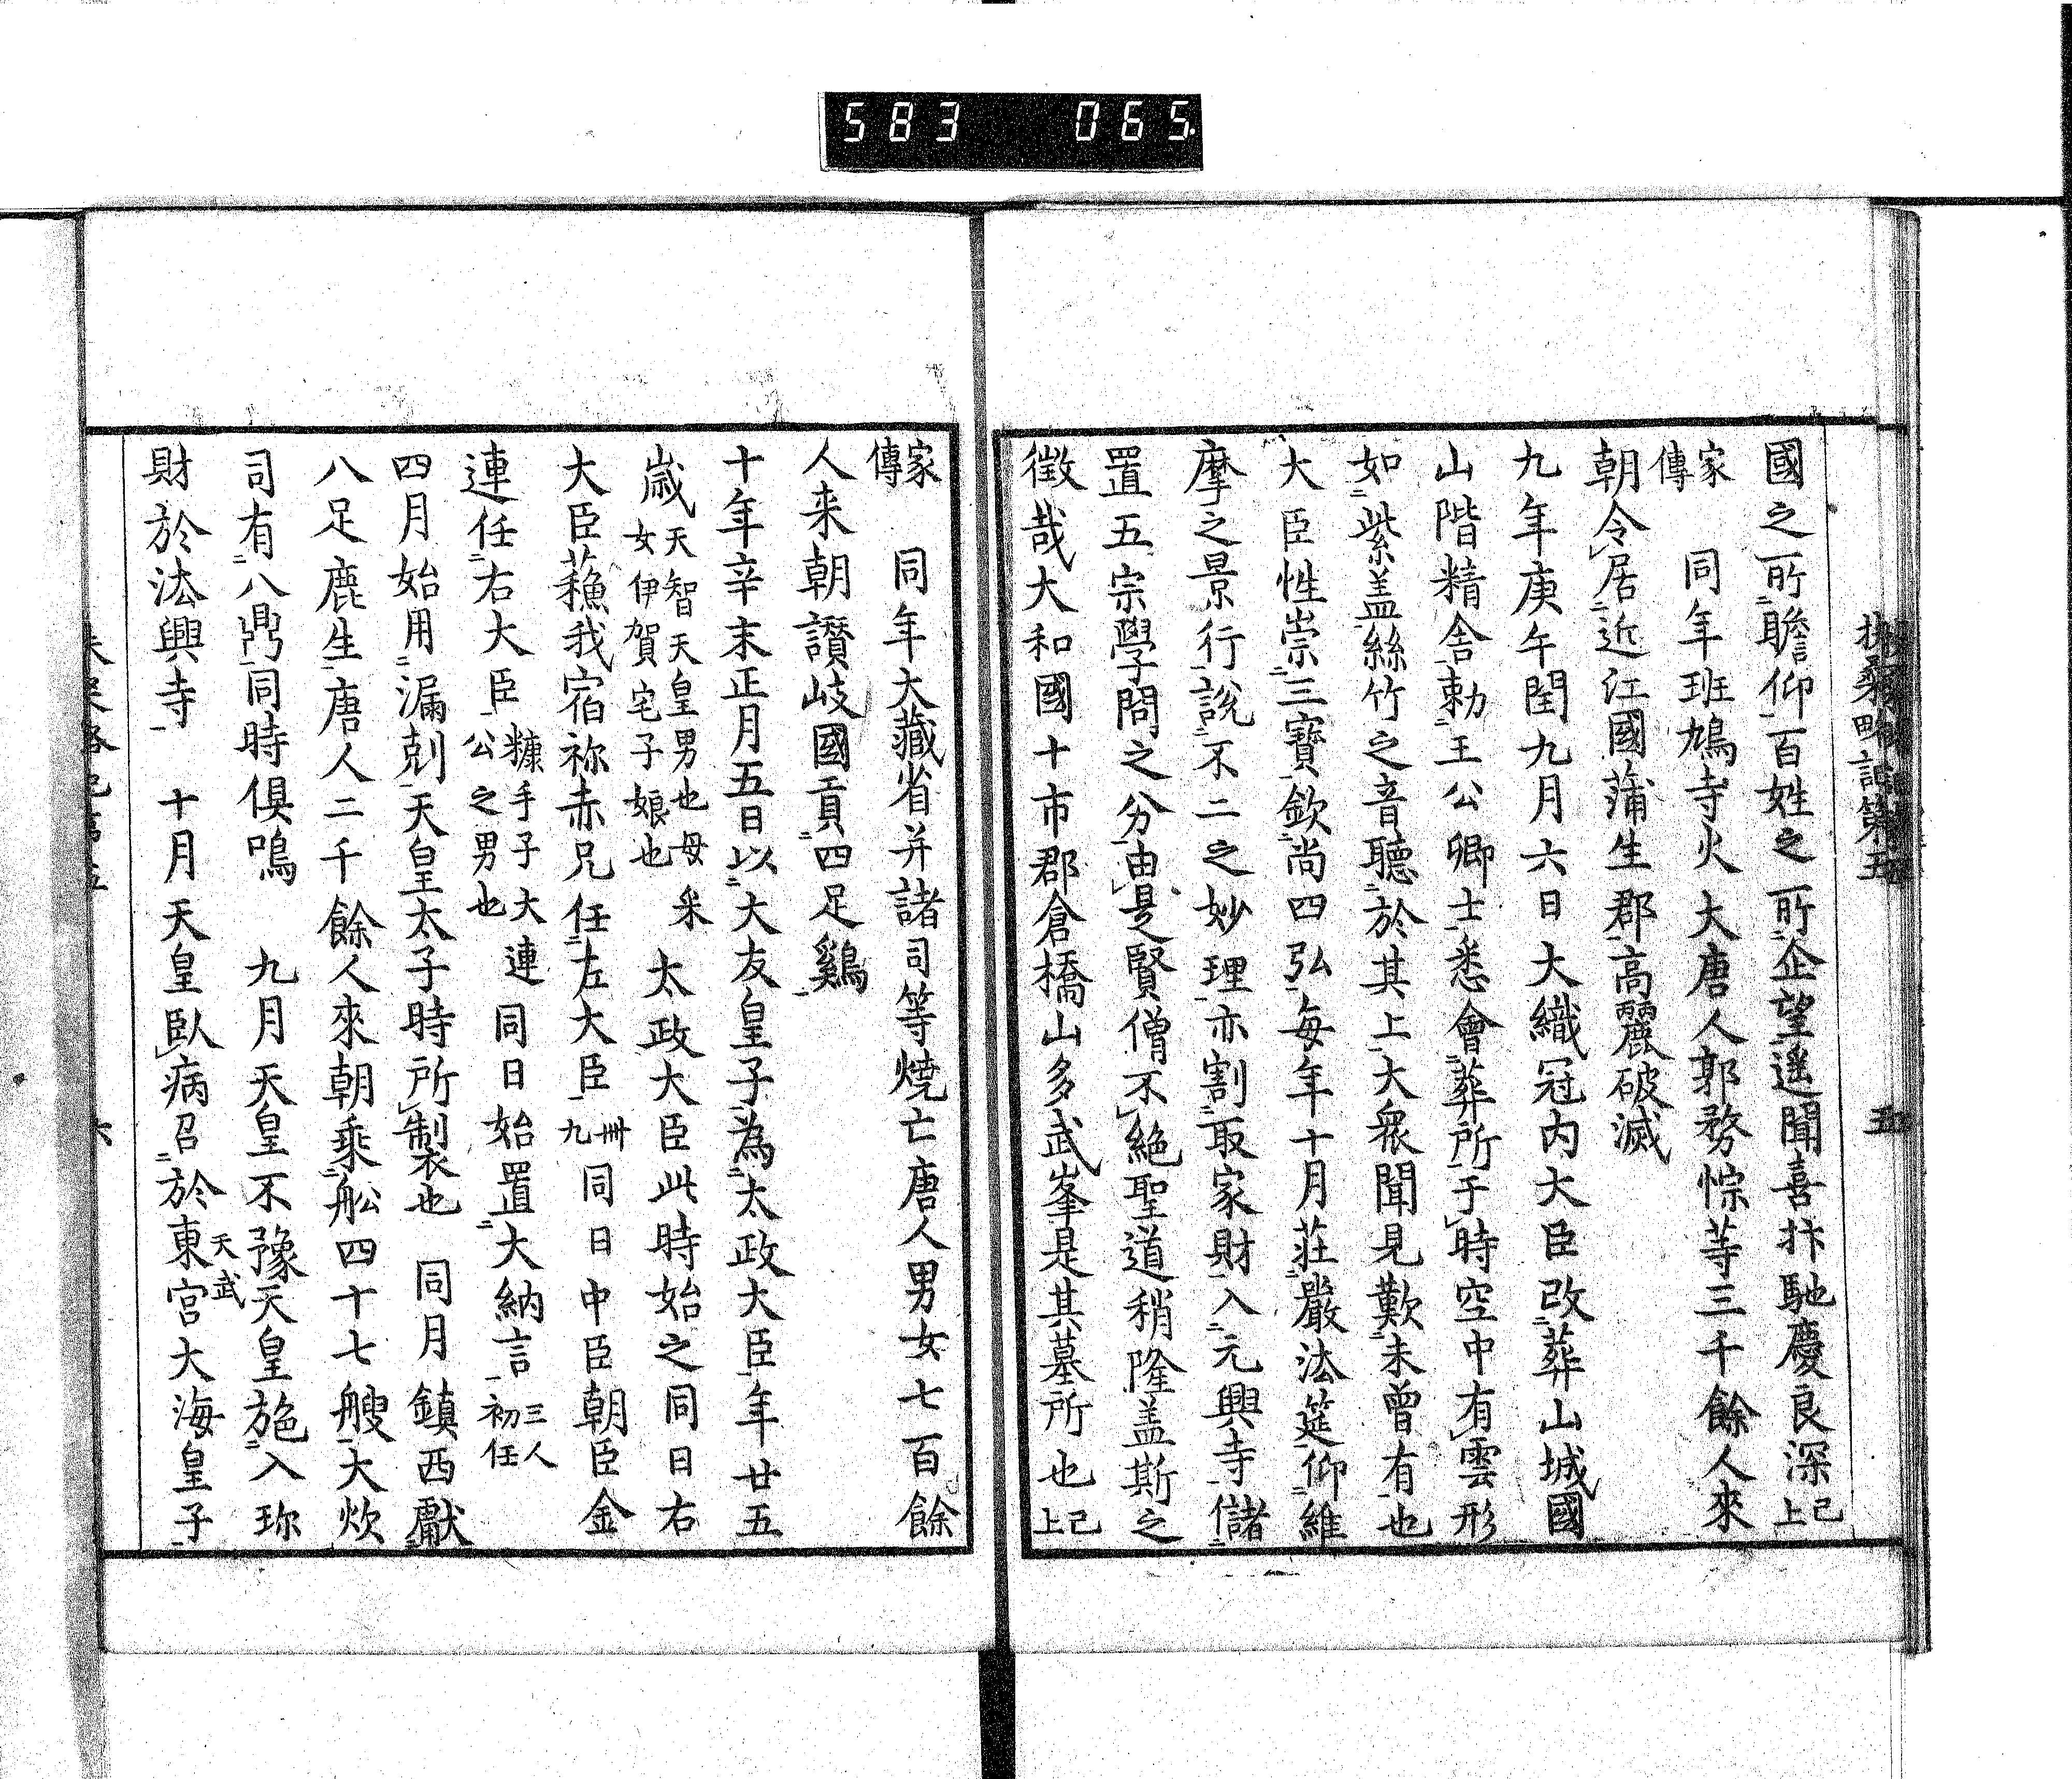 583 065
扶桑略記第五 五
國之所瞻仰百姓之所企望遥聞喜抃馳慶良深已上
家傳 同年班鳩寺火大唐人郭務悰等三千餘人來
朝令居近江國蒲生郡高麗破滅
九年庚午閏九月六日大織冠内大臣改葬山城國
山階精舎勅王公卿士悉會葬所于時空中有雲形
如紫盖絲竹之音聽於其上大衆聞見歎未曽有也
大臣性崇三寳欽尚四弘毎年十月荘嚴法筵仰維
摩之景行説不二之妙理亦割取家財入元興寺儲
置五宗學問之分由是賢僧不絶聖道稍隆盖斯之
徴哉大和國十市郡倉橋山多武峯是其墓所也已上
家傳 同年大藏省并諸司等焼亡唐人男女七百餘
人来朝讃岐國貢四足鷄
十年辛未正月五日以大友皇子為太政大臣年廿五
歳天智天皇男也母釆女伊賀宅子娘也 太政大臣此時始之同日右
大臣蘓我宿祢赤兄任左大臣卌九同日中臣朝臣金
連任右大臣糠手子大連公之男也 同日始置大納言三人初任
四月始用漏剋天皇太子時所製也 同月鎮西獻
八足鹿生唐人二千餘人來朝乘舩四十七艘大炊
司有八鼎同時俱鳴 九月天皇不豫天皇施入珎
財於法興寺 十月天皇臥病召於東宮天武大海皇子